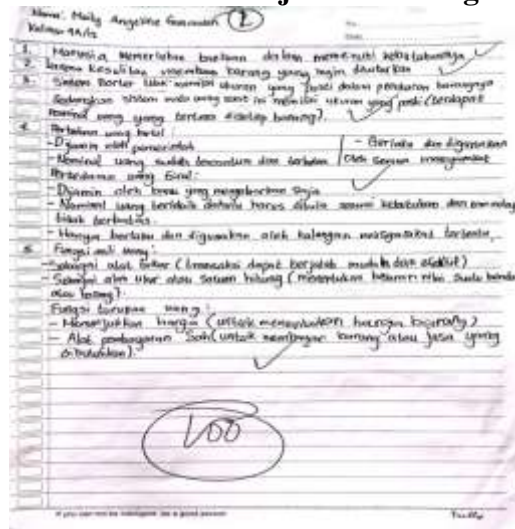 Nama: Maily Angeline Gunawan
Kelas:
1. Manusia memerlukan bantuan dalam memenuhi kebutuhannya
2. karena kesulitan membawa barang yang ingin ditukarkan
3. Sistem Barter tidak memiliki ukuran yang pasti dalam pertukaran barangnya
Sedangkan sistem mata uang saat ini memiliki ukuran yang pasti (terdapat
nominal uang yang tertera disetiap barang).
4. Perbedaan uang kartal:
- Dijamin oleh pemerintah
- Berlaku dan digunakan
- Nominal uang sudah tercantum dan terbatas
Oleh semua masyarakat
uang Giral:
- Dijamin oleh bank yang mengeluarkan saja
- Nominal uang harus ditulis sesuai kebutuhan dan
tidak terbatas.
- Hanya berlaku dan digunakan oleh kalangan masyarakat tertentu.
5. Fungsi asli uang:
- Sebagai alat tukar (transaksi dapat berjalan mudah dan efektif)
- Sebagai alat ukur atau satuan hitung (menentukan besaran nilai suatu benda
atau barang).
Fungsi turunan uang:
- Menunjukkan harga (untuk menentukan harga barang)
- Alat pembayaran Sah (untuk membayar barang atau jasa yang
dibutuhkan).
100